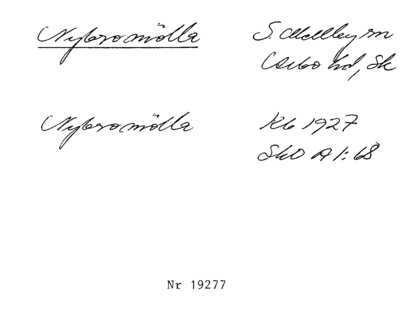 Nybromölla S. Mellby sn
Albo hd, Sk
Nybromölla Kb 1927
SkO A 1:68
Nr 19277